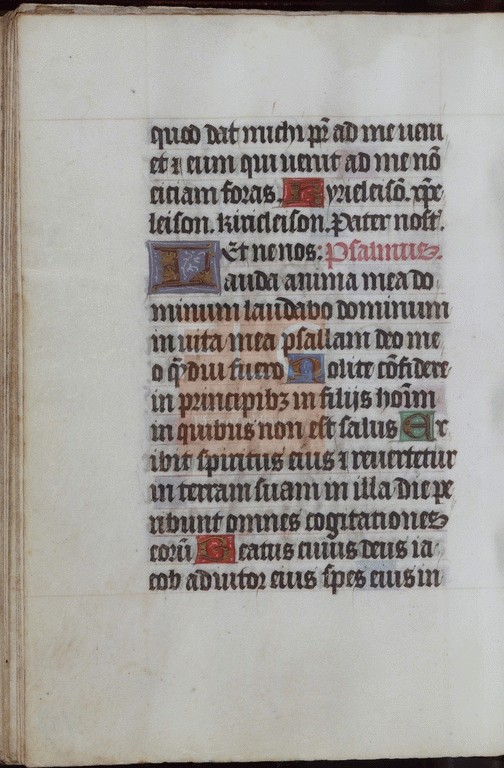 quod dat michi pr̄ ad me ueni
et ⁊ eum qui uenit ad me nō
eiciam foras. Kyrieleisō. xp̄e
leison. kirieleison. Pater nost̄.
Et ne nos: Psalmus.
Lauda anima mea do
minum laudabo dominum
in uita mea psallam deo me
o q̄ȝdiu fuero Nolite cōfidere
in principibȝ in filijs hoīm
in quibus non est salus Ex
ibit spiritus eius ⁊ reuertetur
in terram suam in illa die pe
ribunt omnes cogitationes
eorū Beatus cuius deus ia
cob adiutor eius spes eius in